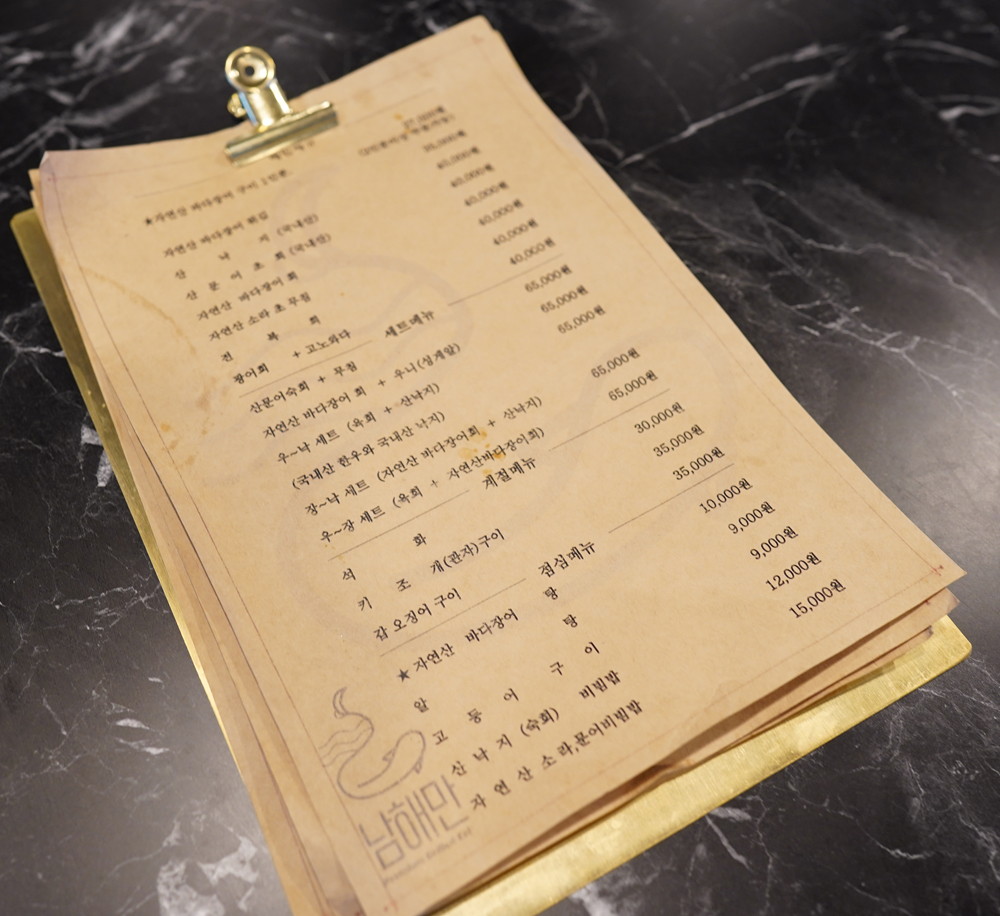 메인메뉴
★자연산 바다장어 구이 1인분. 37,000원
(2인분이상 주문가능)
자연산 바다장어 튀김 35,000원
산 낙 지 (국내산) 40,000원
산 문 어 초 회 (국내산) 40,000원
자연산 바다장어 회 40,000원
자연산 소라 초무침 40,000원
전 복 회 40,000원
광어회 + 고노와다 40,000원
세트메뉴
산문어숙회 + 무침 65,000원
자연산 바다장어 회 + 우니(성게알) 65,000원
우~낙 세트 (육회 + 산낙지) 65,000원
(국내산 한우와 국내산 낙지)
장~낙 세트 (자연산 바다장어회 + 산낙지) 65,000원
우~장 세트 (육회 + 자연산바다장어회) 65,000원
계절메뉴
석 화 30,000원
키 조 개(관자)구이 35,000원
갑 오징어 구이 35,000원
점심메뉴
★자연산 바다장어 탕 10,000원
알 탕 9,000원
고 등 어 구 이 9,000원
산 낙 지 (숙회) 비빔밥 12,000원
자 연 산 소 라,문어비빔밥 15,000원
남해만